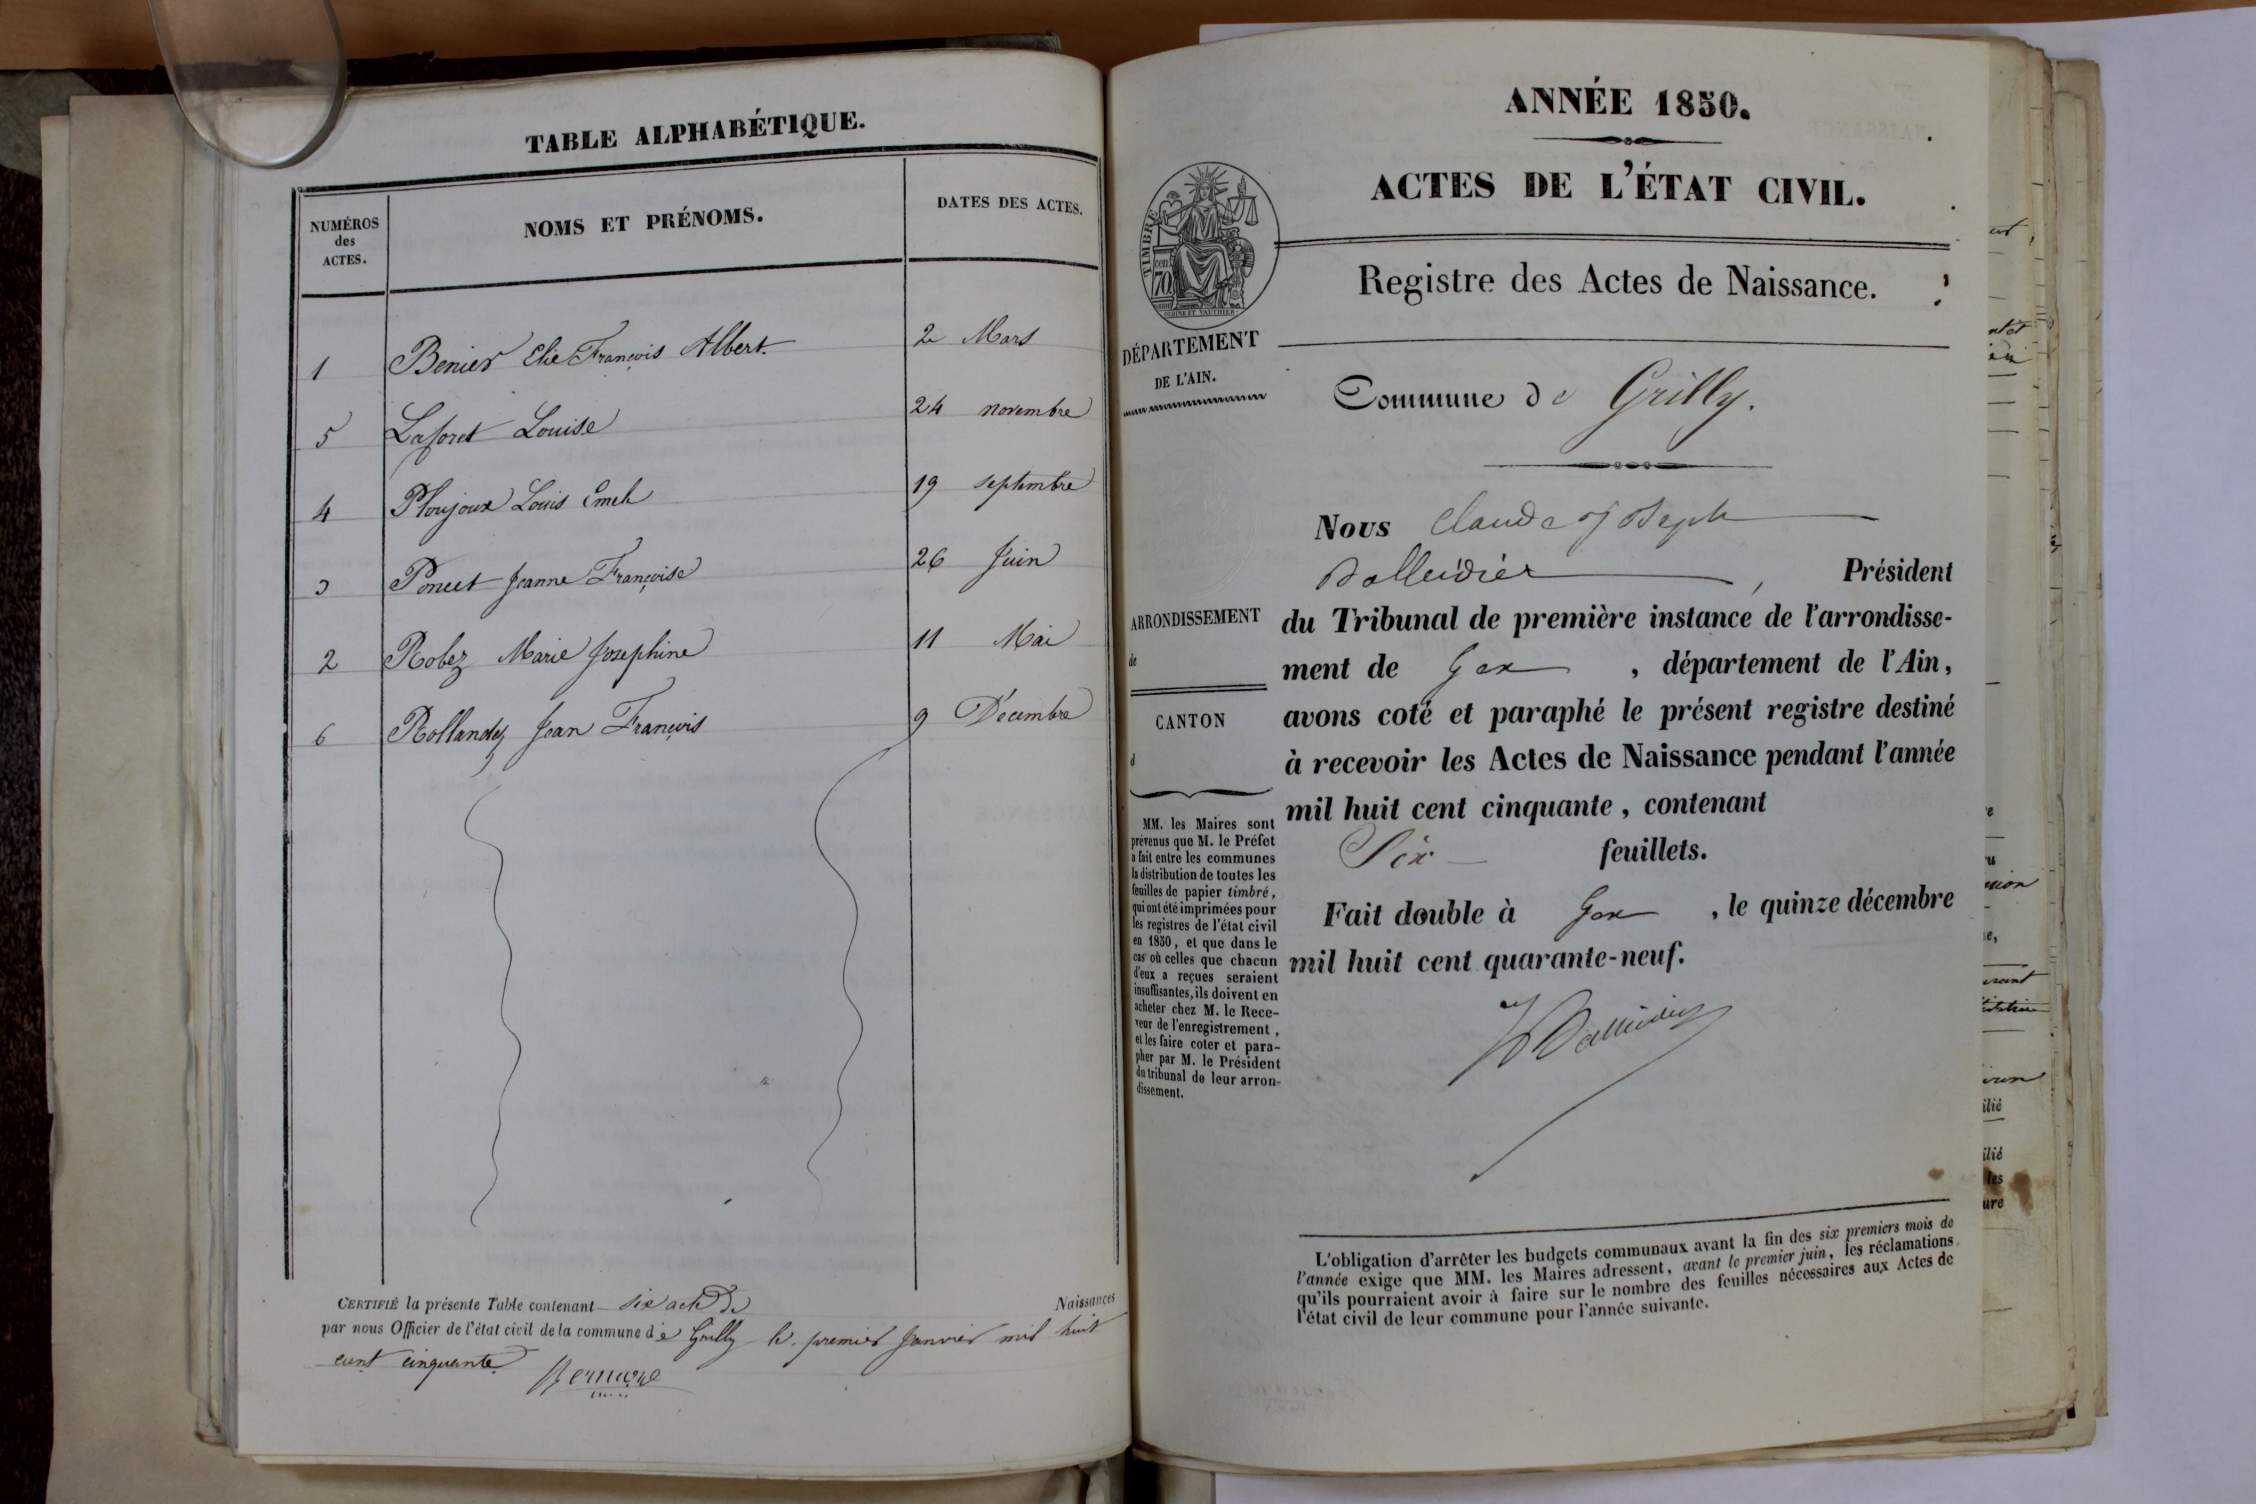 TABLE ALPHABÉTIQUE.
NUMÉROS
des
ACTES.
NOMS ET PRÉNOMS.
DATES DES ACTES.
1 Benier Elie François Albert. 2 Mars
5 Laforet Louise 24 novembre
4 Ploujoux Louis Emeh 19 septembre
3 Poncet Jeanne Françoise 26 Juin
2 Robez Marie Josephine 11 Mai
6 Rollandez Jean François 9 Décembre
CERTIFIÉ la présente Table contenant six acte De Naissances
par nous Officier de l'état civil de la commune de Grilly le premier Janvier mil huit
cent cinquante
ANNÉE 1850.
ACTES DE L'ÉTAT CIVIL.
Registre des Actes de Naissance.
TIMBRE
70
DÉPARTEMENT
DE L'AIN.
Commune de Grilly.
Nous Claude Joseph
Dalleidier, Président
du Tribunal de première instance de l'arrondisse-
ment de Gex, département de l'Ain,
avons coté et paraphé le présent registre destiné
à recevoir les Actes de Naissance pendant l'année
mil huit cent cinquante, contenant
Six feuillets.
Fait double à Gex, le quinze décembre
mil huit cent quarante-neuf.
ARRONDISSEMENT
de
CANTON
d
MM. les Maires sont
prévenus que M. le Préfet
a fait entre les communes
la distribution de toutes les
feuilles de papier timbré,
qui ont été imprimées pour
les registres de l'état civil
en 1850, et que dans le
cas où celles que chacun
d'eux a reçues seraient
insuffisantes, ils doivent en
acheter chez M. le Rece-
veur de l'enregistrement,
et les faire coter et para-
pher par M. le Président
du tribunal de leur arron-
dissement.
L'obligation d'arrêter les budgets communaux avant la fin des six premiers mois de
l'année exige que MM. les Maires adressent, avant le premier juin, les réclamations
qu'ils pourraient avoir à faire sur le nombre des feuilles nécessaires aux Actes de
l'état civil de leur commune pour l'année suivante.